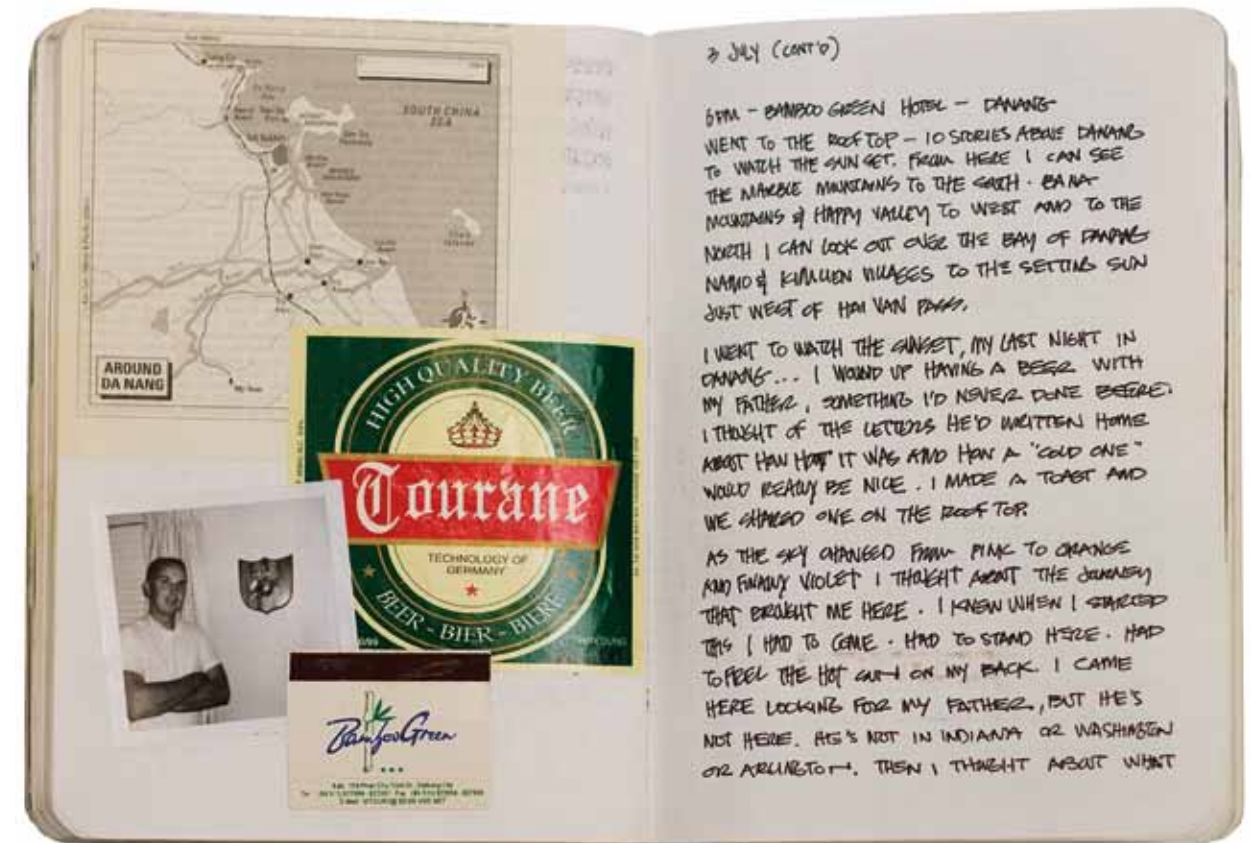 SOUTH CHINA
SEA
AROUND
DA NANG
HIGH QUALITY BEER
Tourane
TECHNOLOGY OF
GERMANY
BEER - BIER - BIERE
BambooGreen
3 JULY (CONT'D)
6PM - BAMBOO GREEN HOTEL - DANANG
WENT TO THE ROOFTOP - 10 STORIES ABOVE DANANG
TO WATCH THE SUNSET. FROM HERE I CAN SEE
THE MARBLE MOUNTAINS TO THE SOUTH. BANA
MOUNTAINS & HAPPY VALLEY TO WEST AND TO THE
NORTH I CAN LOOK OUT OVER THE BAY OF DANANG
NAMO & KIMLIEN VILLAGES TO THE SETTING SUN
JUST WEST OF HAI VAN PASS.
I WENT TO WATCH THE SUNSET, MY LAST NIGHT IN
DANANG... I WOUND UP HAVING A BEER WITH
MY FATHER, SOMETHING I'D NEVER DONE BEFORE.
I THOUGHT OF THE LETTERS HE'D WRITTEN HOME
ABOUT HOW HOT IT WAS AND HOW A "COLD ONE"
WOULD REALLY BE NICE. I MADE A TOAST AND
WE SHARED ONE ON THE ROOF TOP.
AS THE SKY CHANGED FROM PINK TO ORANGE
AND FINALLY VIOLET I THOUGHT ABOUT THE JOURNEY
THAT BROUGHT ME HERE. I KNEW WHEN I STARTED
THIS I HAD TO COME. HAD TO STAND HERE. HAD
TO FEEL THE HOT SUN ON MY BACK. I CAME
HERE LOOKING FOR MY FATHER, BUT HE'S
NOT HERE. HE'S NOT IN INDIANA OR WASHINGTON
OR ARLINGTON. THEN I THOUGHT ABOUT WHAT